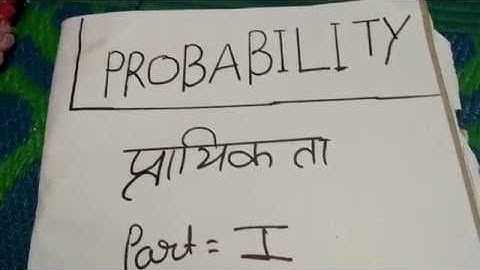 PROBABILITY
प्रायिकता
Part = I